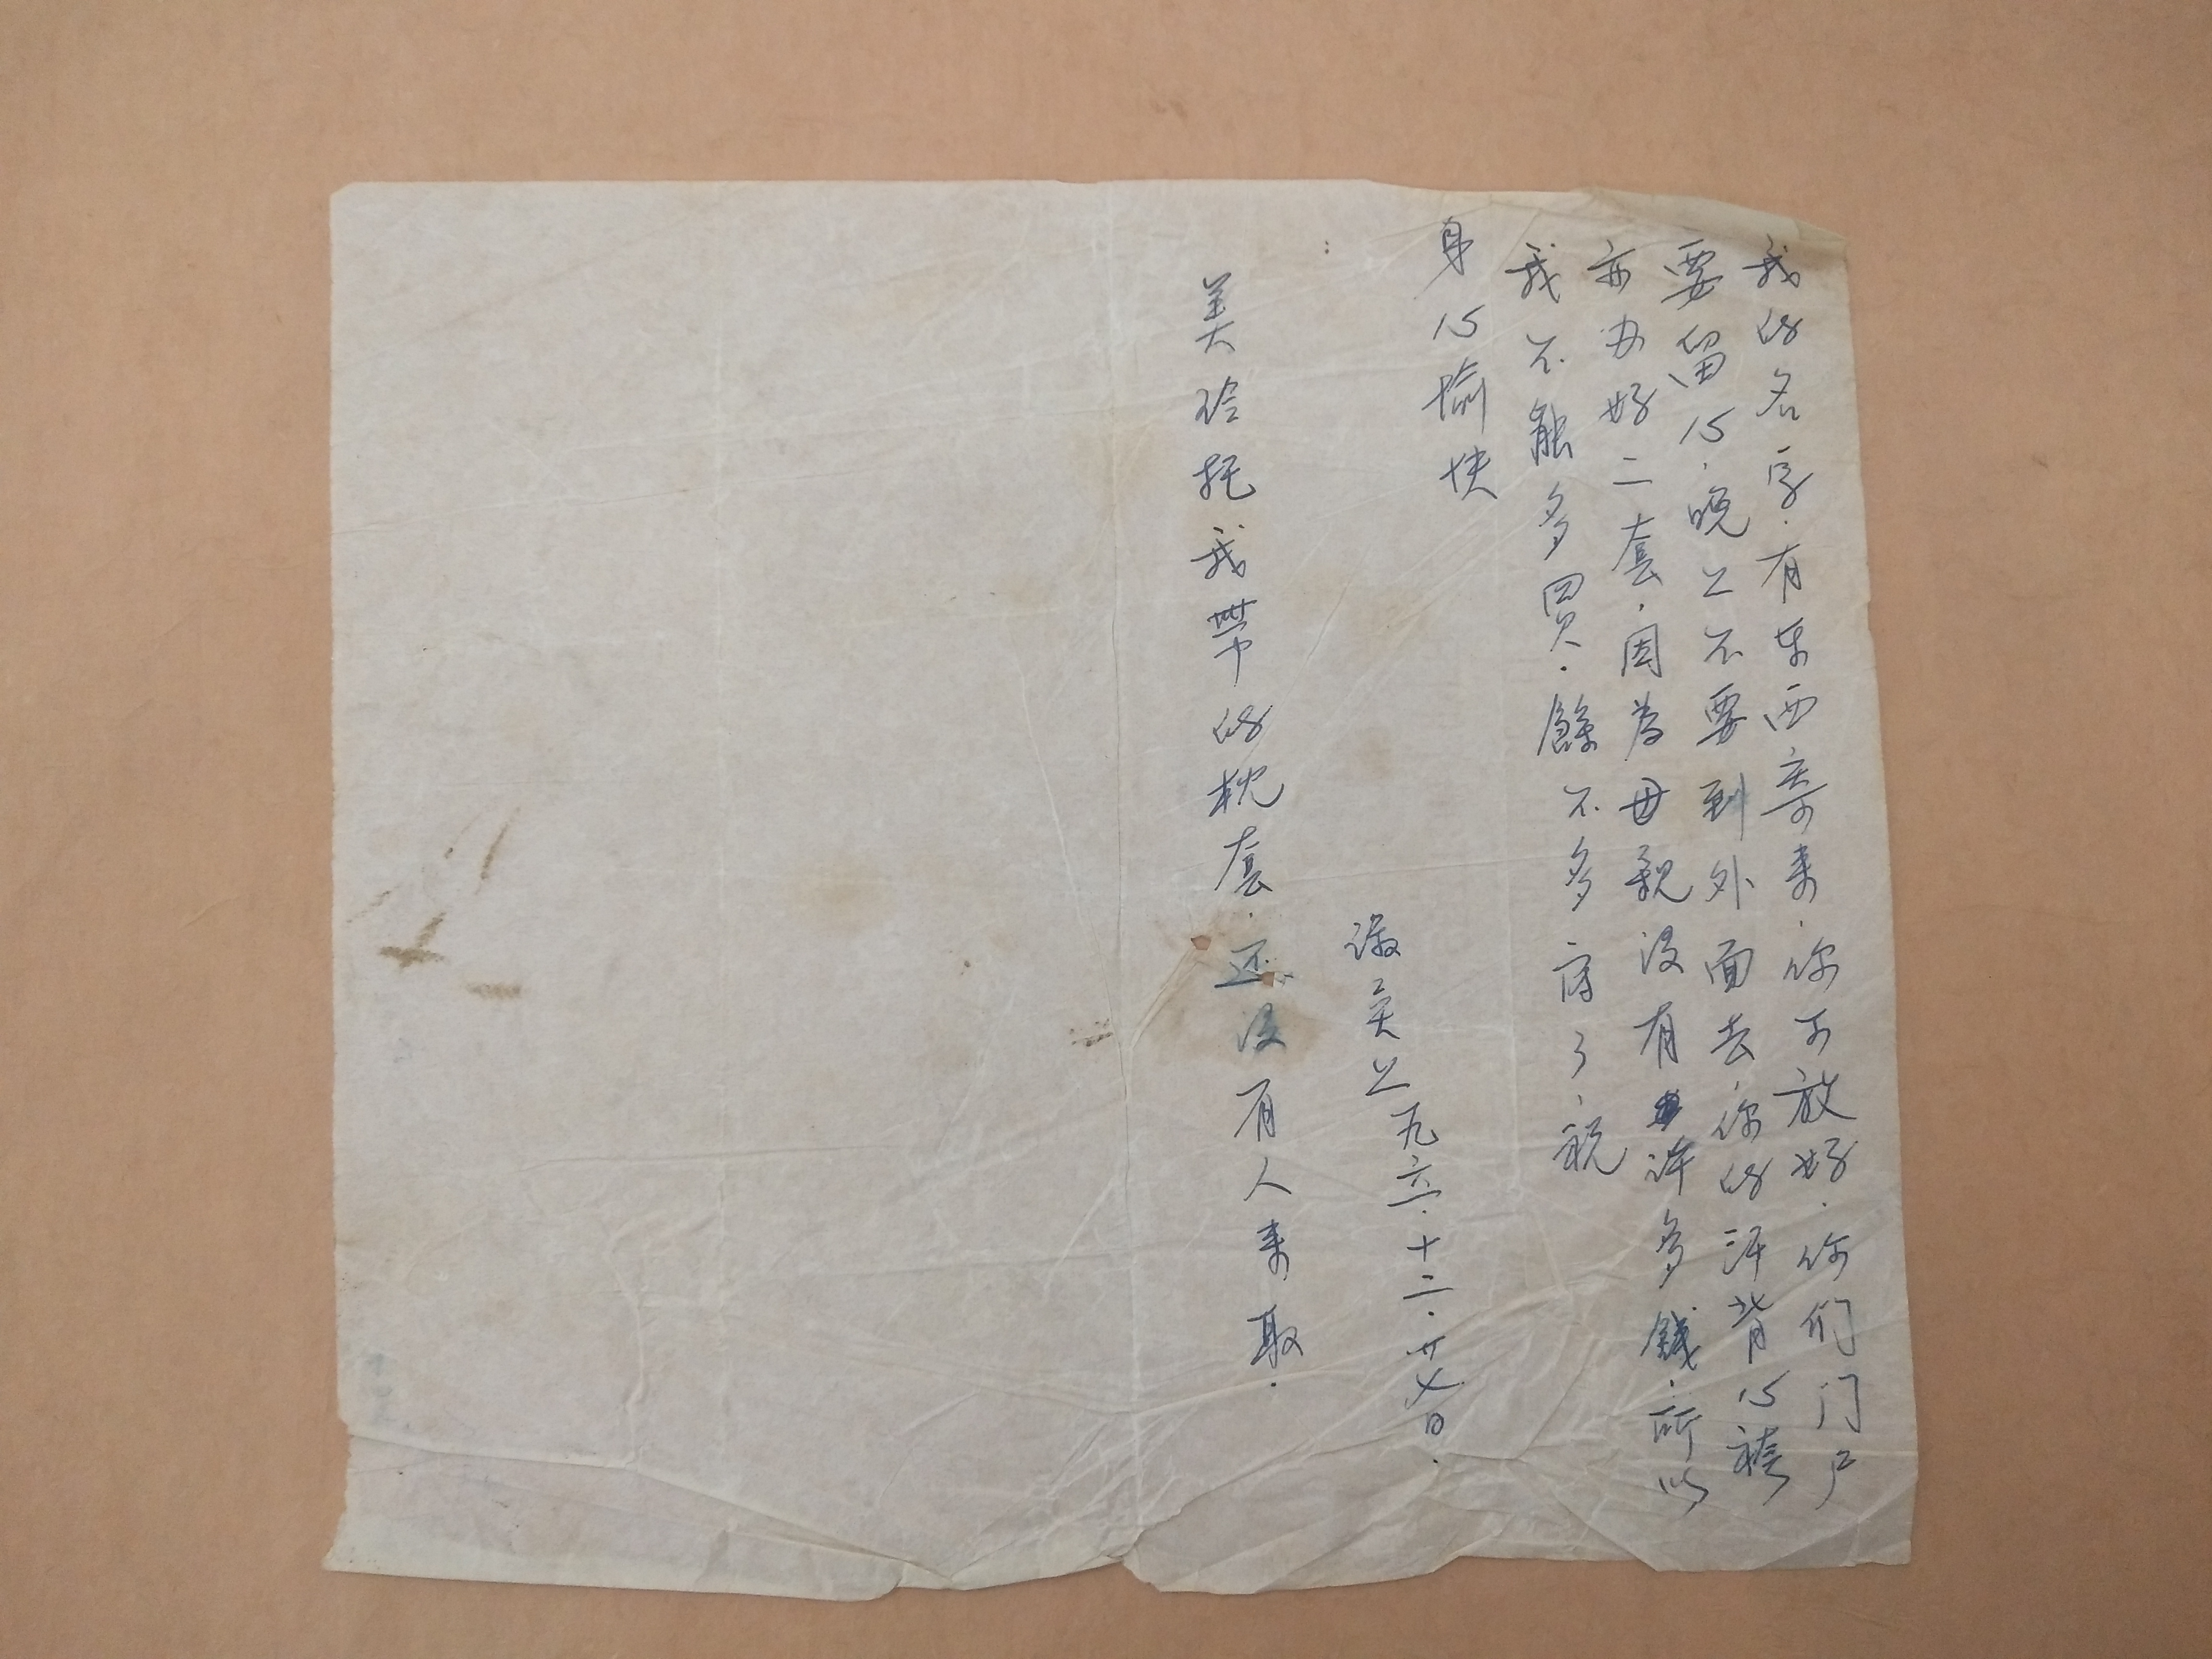 我的名字．有东西寄来．你可放好．你们门户
要留心．晚上不要到外面去．你的汗背心裤
亦办好二套．因为母親没有许多錢．所以
我不能多買．餘不多言了、祝
身心愉快
上 九六．十二．廿 日．
美玲托我带的枕套．还没有人来取．